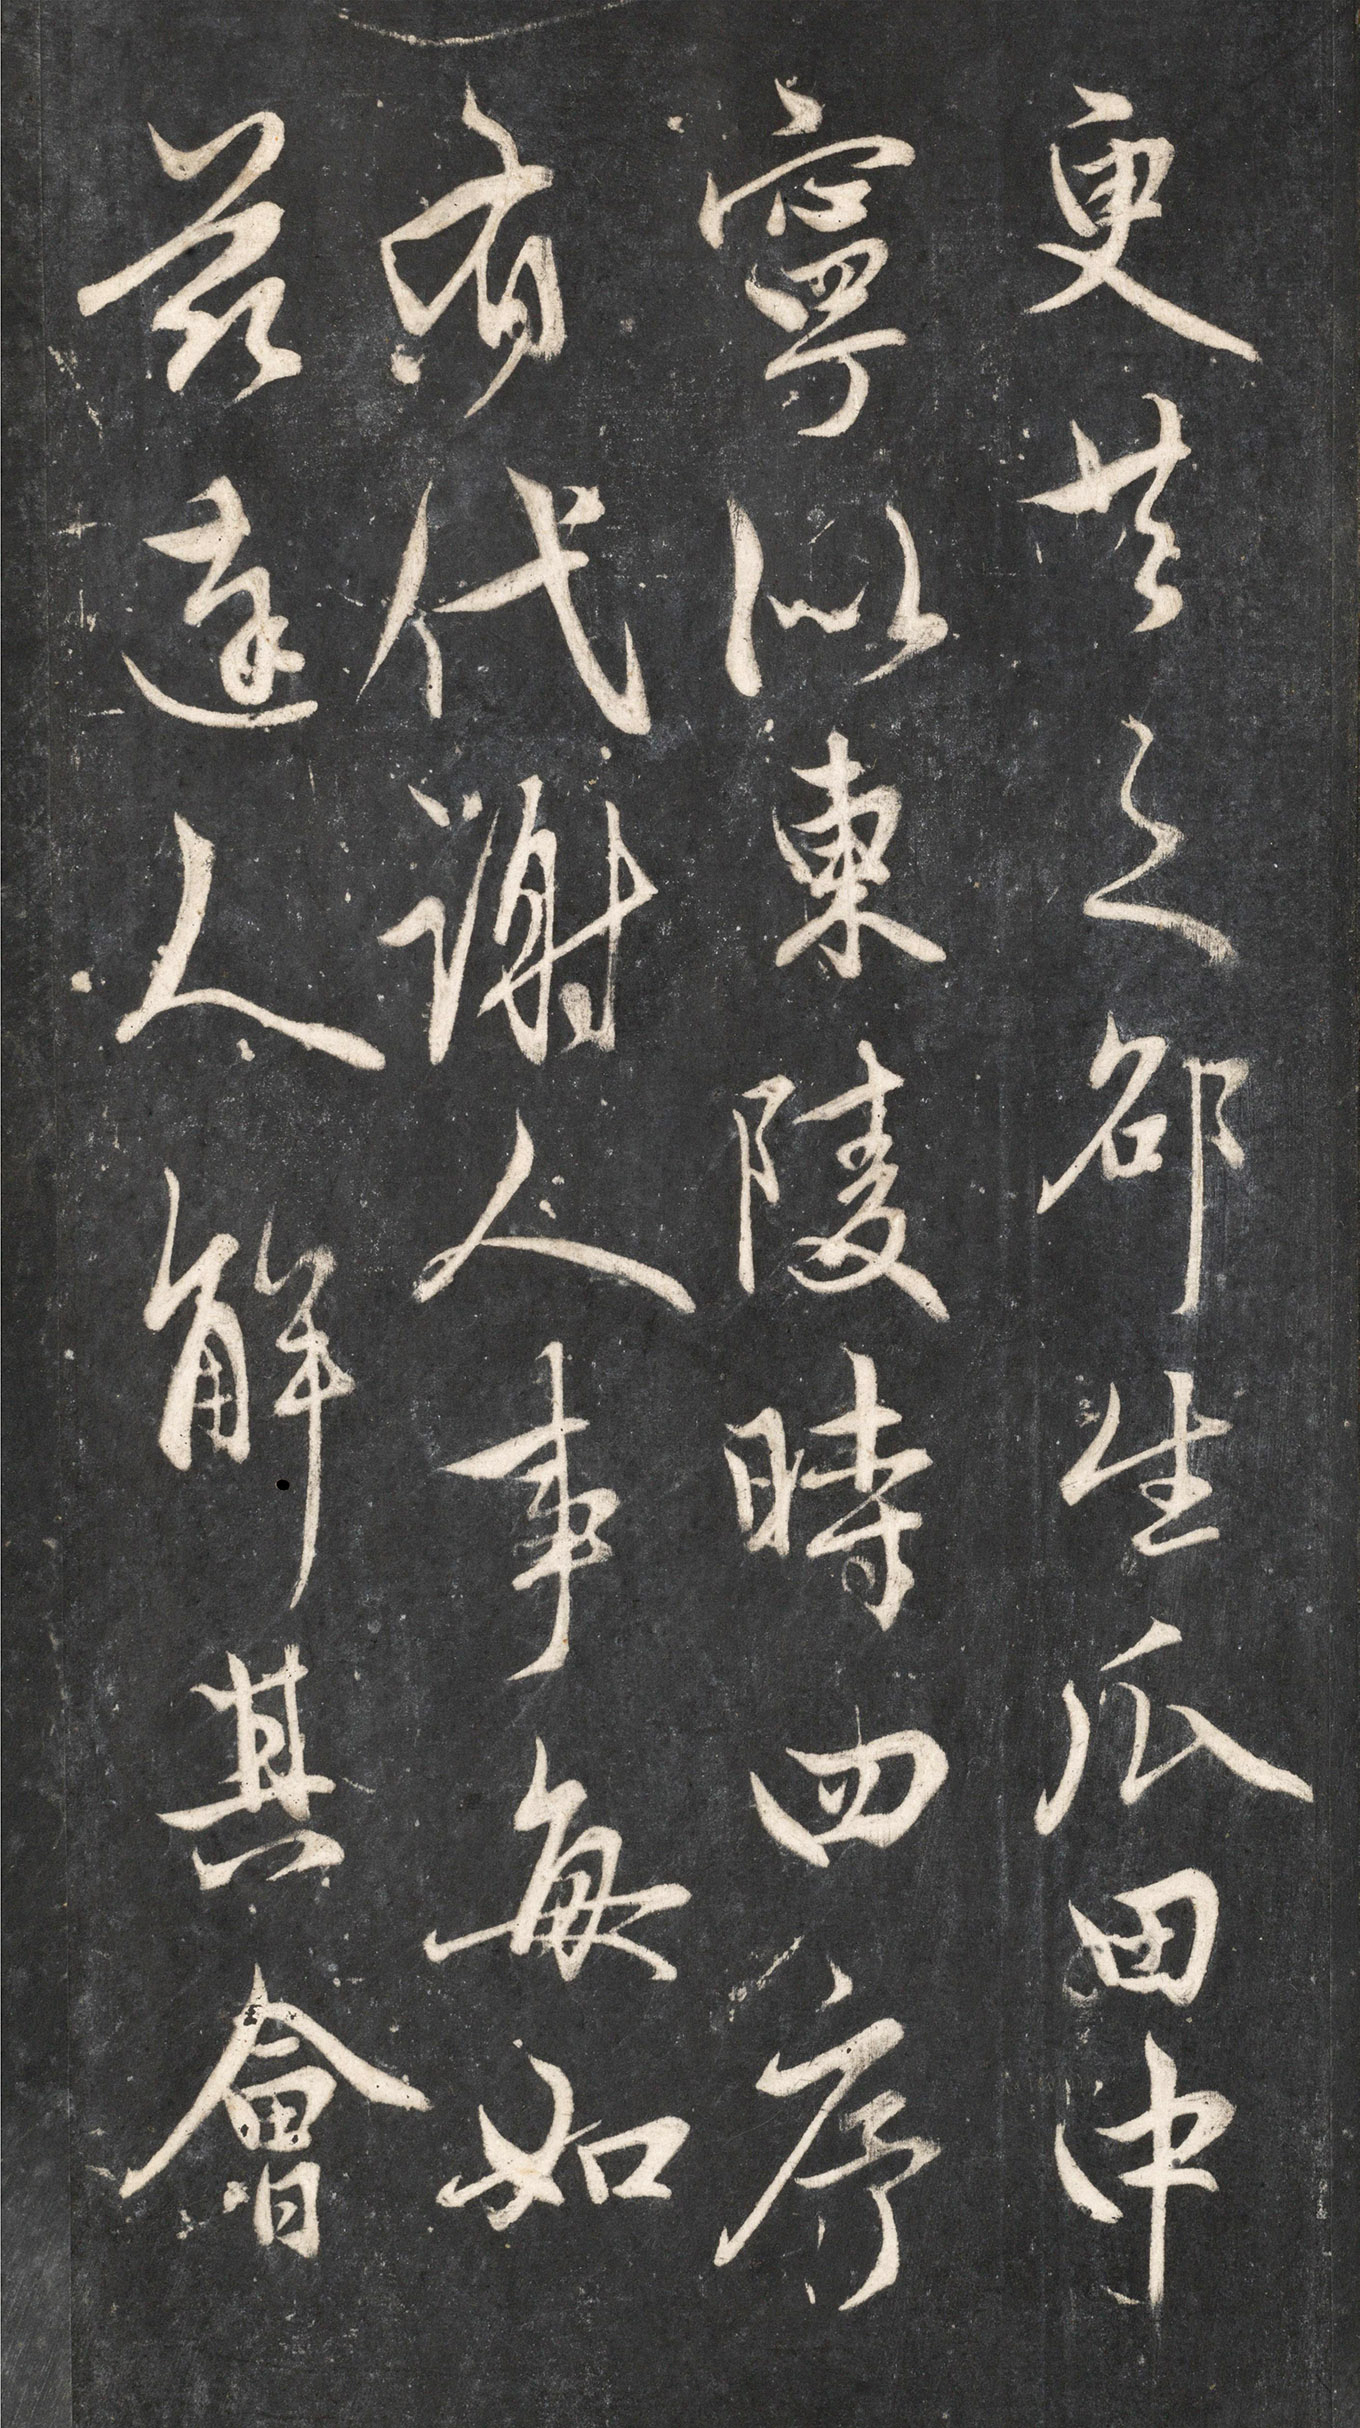 更共之邵生瓜田中
寧似東陵時四序
有代謝人事每如
茲達人解其會